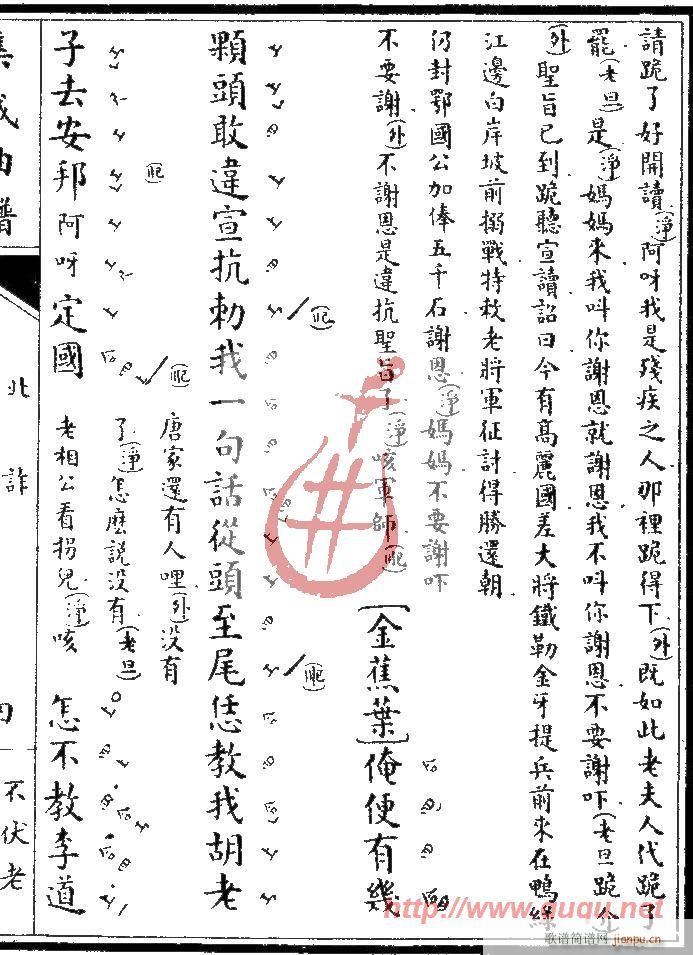 請跪了好開讀(淨)阿呀我是殘疾之人那裡跪得下(外)既如此老夫人代跪了
罷(老旦)是(淨)媽媽來我叫你謝恩就謝恩我不叫你謝恩不要謝吓(老旦跪介)
(外)聖旨已到跪聽宣讀詔曰今有高麗國差大將鐵勒金牙提兵前來在鴨綠
江邊白岸坡前搦戰特敕老將軍征討得勝還朝
仍封鄂國公加俸五千石謝恩(淨)媽媽不要謝吓
不要謝(外)不謝恩是違抗聖旨了(淨)咳軍師
[金蕉葉]俺便有幾
顆頭敢違宣抗勅我一句話從頭至尾恁教我胡老
唐家還有人哩(外)没有
了(淨)怎麽説没有(老旦)
老相公看拐兒(淨)咳
子去安邦阿呀定國
怎不教李道
集成曲譜
北詐
不伏老
http://www.ququ.net
歌谱简谱网 jianpu.cn